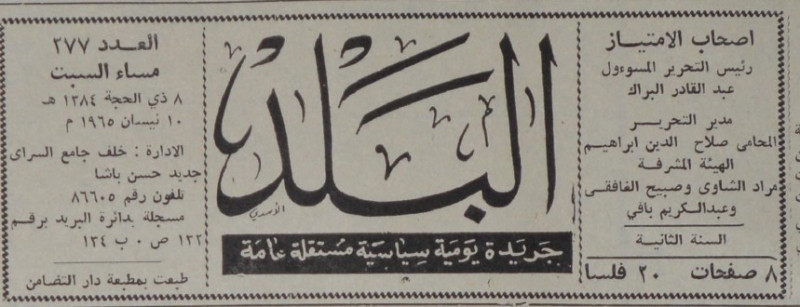 اصحاب الامتياز
رئيس التحرير المسوءول
عبد القادر البراك
مدير التحرير
المحامى صلاح الدين ابراهيم
الهيئة المشرفة
مراد الشاوى وصبيح الغافقى
وعبدالكريم بافي
السنة الثانية
٨ صفحات ٢٠ فلسا
البلد
الأسدي
جريدة يومية سياسية مستقلة عامة
العدد ٢٧٧
مساء السبت
٨ ذي الحجة ١٣٨٤ هـ
١٠ نيسان ١٩٦٥ م
الادارة : خلف جامع السراى
جديد حسن باشا
تلفون رقم ٨٦٦٠٥
مسجلة بدائرة البريد برقم
١٢٢ ص ٠ ب ١٢٤
طبعت بمطبعة دار التضامن